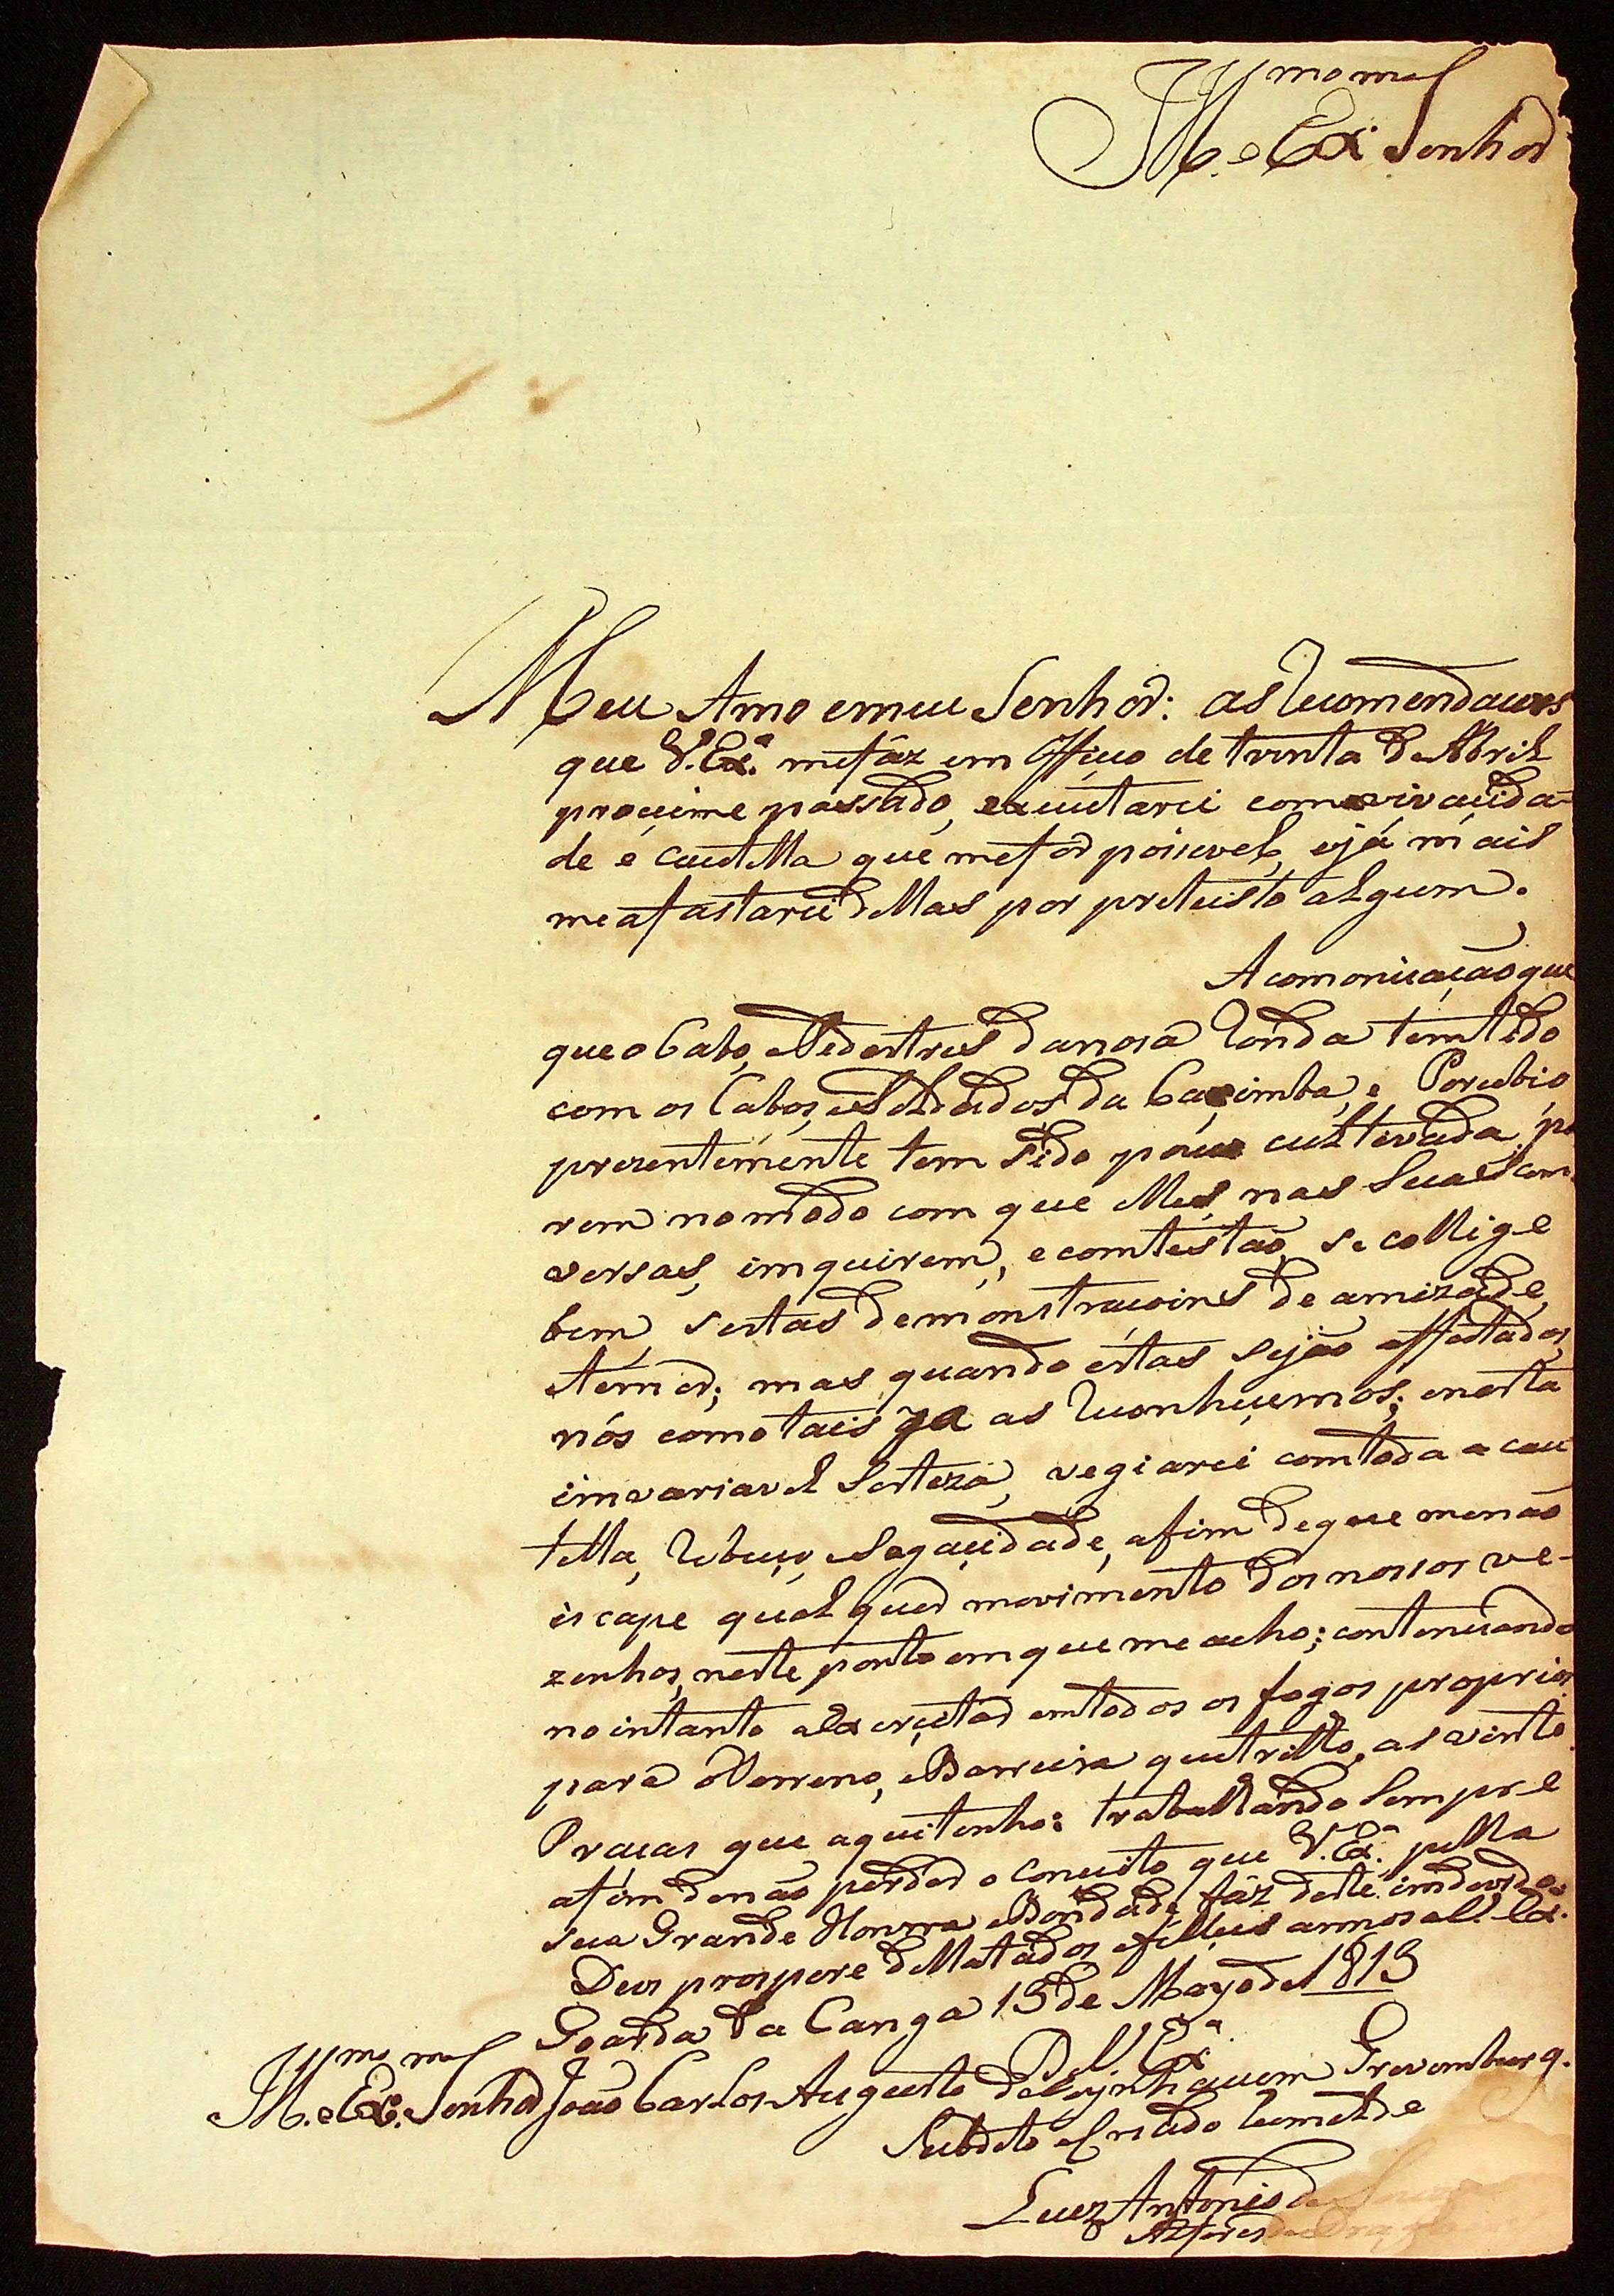 Ill.mo e Ex.mo Senhor
Meu Amo emeu Senhor: as Recomendacoes
que V. Ex.a mefáz em Officio de trinta de Abril
procimo passado, executarei com a vivacida-
de e cautella que mefor poicivel, e já mais
me afastarei dellas por preteisto algum.
A comonicação que
que o Cabo, e Pedestres danosa Ronda temtido
com os Cabos, e Soldados da Cacimba, e
prezentemente tem Sido pouco cultevada, po
rem no modo com que elles, nas Suas com
versas, imquirem, e comtestão, se collige
bem, sertas demonstracoins de amizade,
etemor; mas quando éstas sejão affetadas,
nós como tais ja as Reconhecemos; e nesta
imvariavel Serteza, vegiarei comtoda a cau
tella, Rebuço, e Sagacidade, afim deque menão
és cape qual quer movimento dos nossos ve-
zenhos, neste ponto em que me acho; contenuando
no intanto a Exercitar emtodos os fogos proprios
para o Terreno, e Barreira que trilho, as vinte
Pracas que aqui tenho: trabalhando Sempre
afim denão perder o Conceito que V. Ex.a pella
sua Grande Honrra e Bondade, fáz deste seu
Deos prospere Dellatados e filices annos a V. Ex.a
Goarda da Canga 15 de Mayo de 1819
De V. Ex.a
Ill.mo e Ex.mo Senhor João Carlos Augusto d'Oeynhausem Grevemburg.
Subdito e Criado humelde
Luez Antonio de Souza
Alferes de